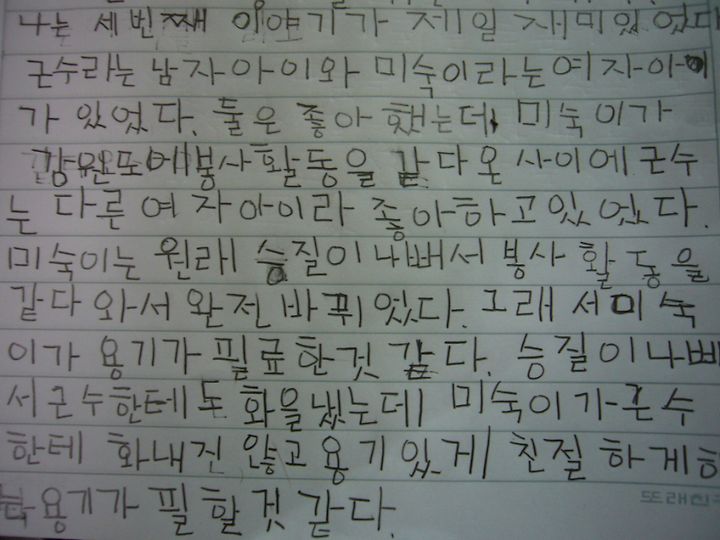 나는 세번째 이야기가 제일 재미있었다
근수라는 남자아이와 미숙이라는여자아이
가 있었다. 둘은 좋아 했는데, 미숙이가
강원도에봉사활동을 갔다온 사이에 근수
는 다른 여자아이라 좋아하고있었다.
미숙이는 원래 승질이 나뻐서 봉사 활동을
갔다 와서 완전 바뀌었다. 그래서미숙
이가 용기가 필료한것 같다. 승질이나뻐
서근수한테도 화을냈는데 미숙이가근수
한테 화내진 않고용기있게 친절하게하
용기가 필할것 같다.
또래친